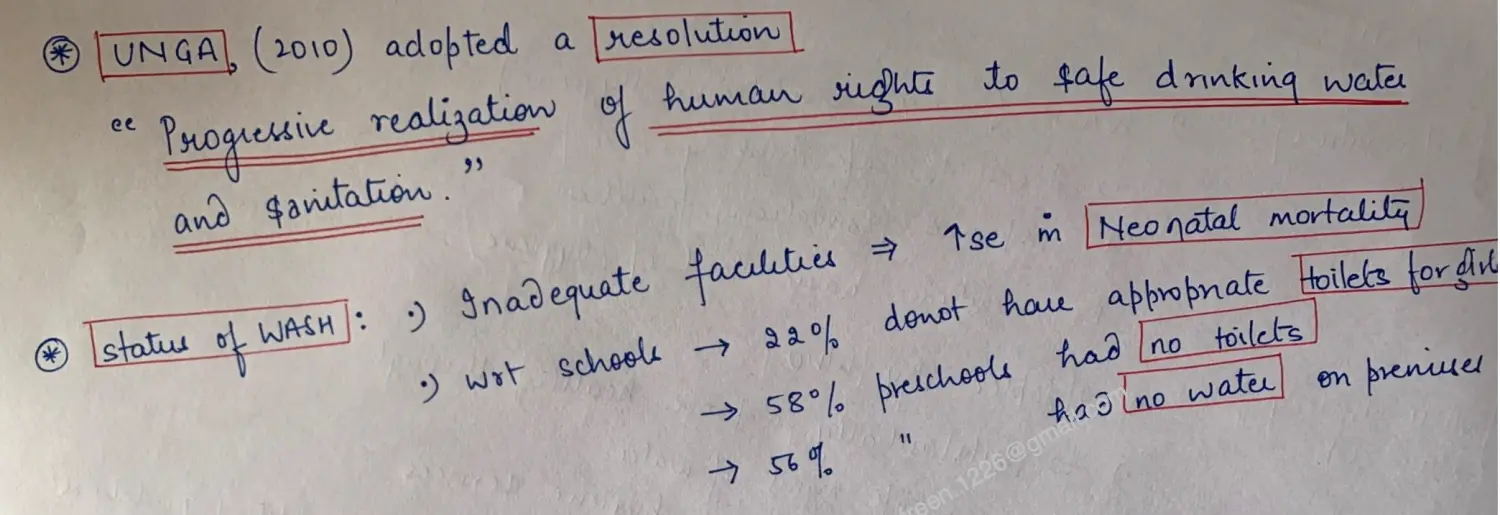 ⊛ UNGA, (2010) adopted a resolution
“ Progressive realization of human rights to safe drinking water
and sanitation. ”
⊛ status of WASH : •) Inadequate facilities ⇒ ↑se in Neonatal mortality
•) wrt schools → 22% donot have appropriate toilets for girl
→ 58% preschools had no toilets
→ 56% " had no water on premises